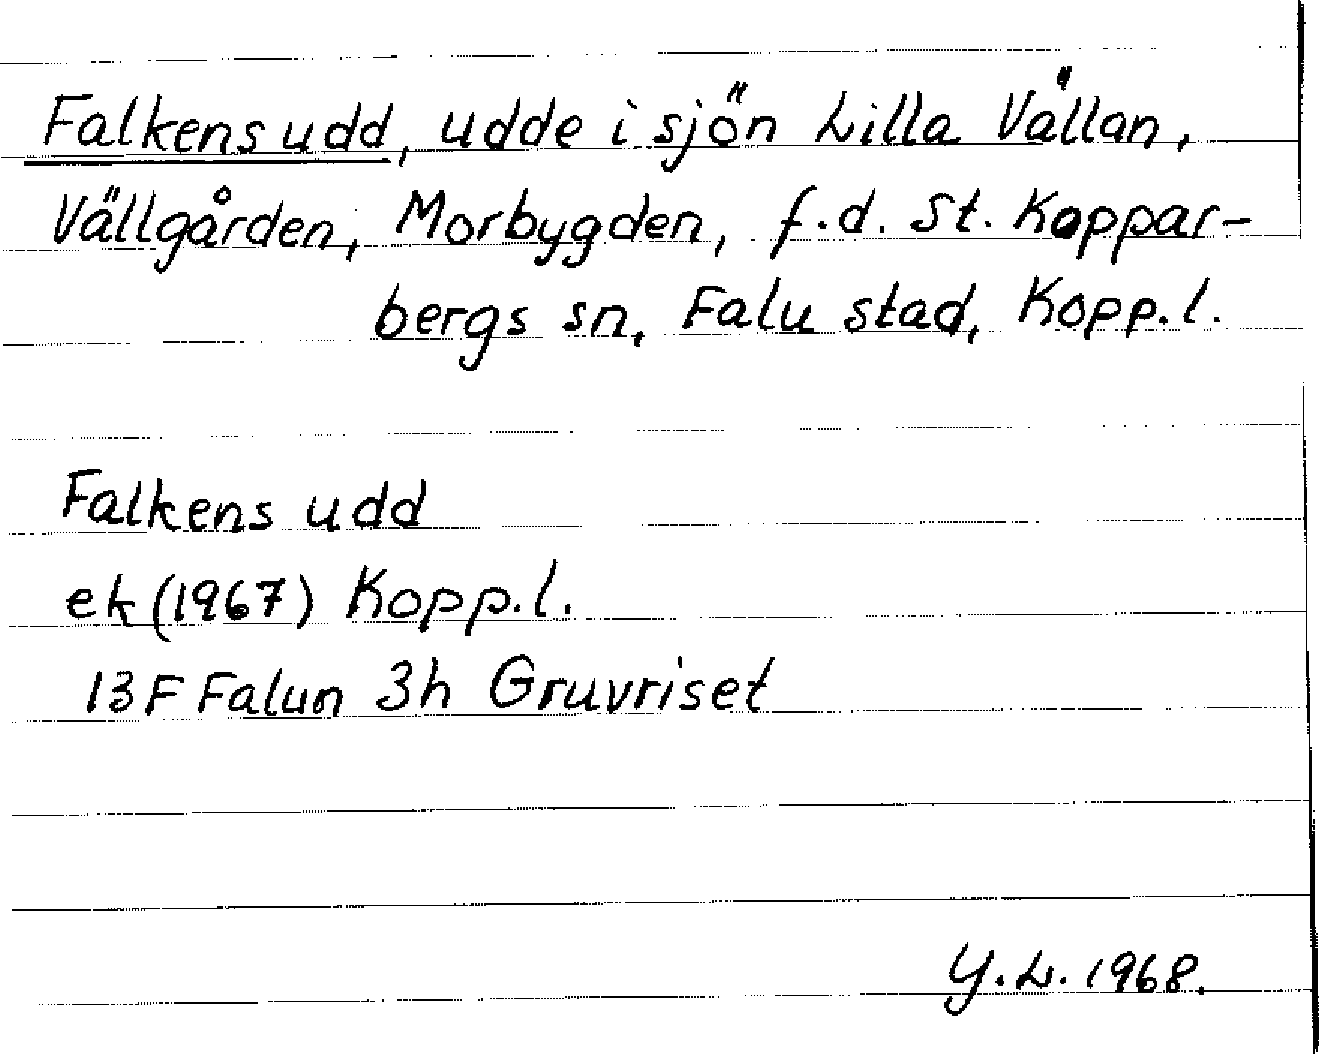 Falkens udd, udde i sjön Lilla Vällan,
Vällgården, Morbygden, f.d. St. Koppar-
bergs sn, Falu stad, Kopp.l.
Falkens udd
ek (1967) Kopp.l.
13F Falun 3h Gruvriset
Y.L. 1968.